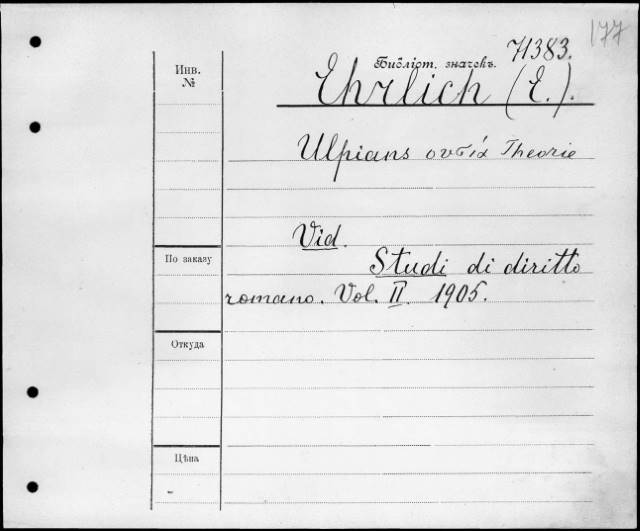 177
71383.
Библіот. значекъ.
Инв.
№
Ehrlich (E.).
Ulpians ουσία Theorie
Vid.
По заказу
Studi di diritto
romano. Vol. II. 1905.
Откуда
Цѣна